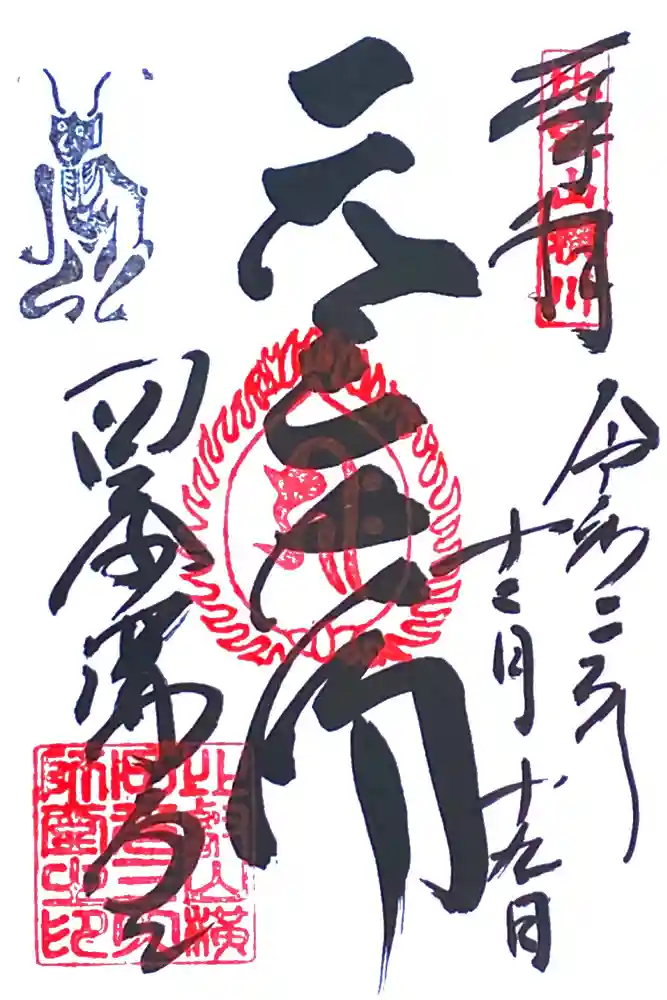 奉拝
比叡山横川
令和二年
十二月十九日
元三大師
四季講堂
比叡山横
師堂之印